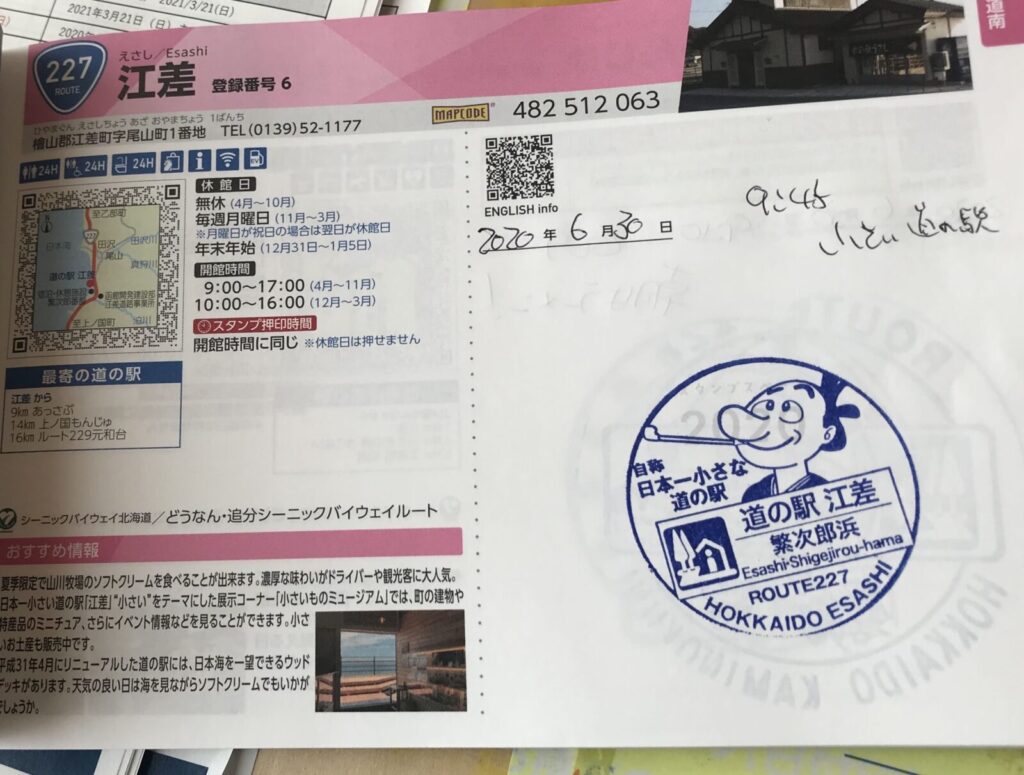 2021/3/21(日)
2021年3月21日(日)
道南
227
ROUTE
えさし/Esashi
江差 登録番号 6
ひやまぐん えさしちょう あざ おやまちょう 1ばんち
檜山郡江差町字尾山町1番地 TEL(0139)52-1177
MAPCODE 482 512 063
24H 24H 24H
ENGLISH info
2020年6月30日
小さい道の駅
休館日
無休(4月〜10月)
毎週月曜日(11月〜3月)
※月曜日が祝日の場合は翌日が休館日
年末年始(12月31日〜1月5日)
開館時間
9:00〜17:00(4月〜11月)
10:00〜16:00(12月〜3月)
スタンプ押印時間
開館時間に同じ ※休館日は押せません
至乙部町
日本海
227
田沢
田沢川
尾山
道の駅 江差
函館開発建設部
江差道路事務所
至上ノ国町
最寄の道の駅
江差から
9km あっさぶ
14km 上ノ国もんじゅ
16km ルート229元和台
シーニックバイウェイ北海道/どうなん・追分シーニックバイウェイルート
おすすめ情報
夏季限定で山川牧場のソフトクリームを食べることが出来ます。濃厚な味わいがドライバーや観光客に大人気。
日本一小さい道の駅「江差」“小さい”をテーマにした展示コーナー「小さいものミュージアム」では、町の建物や
特産品のミニチュア、さらにイベント情報などを見ることができます。小さ
いお土産も販売中です。
平成31年4月にリニューアルした道の駅には、日本海を一望できるウッド
デッキがあります。天気の良い日は海を見ながらソフトクリームでもいかが
でしょうか。
自称
日本一小さな
道の駅
道の駅 江差
繁次郎浜
Esashi-Shigejirou-hama
ROUTE227
HOKKAIDO ESASHI